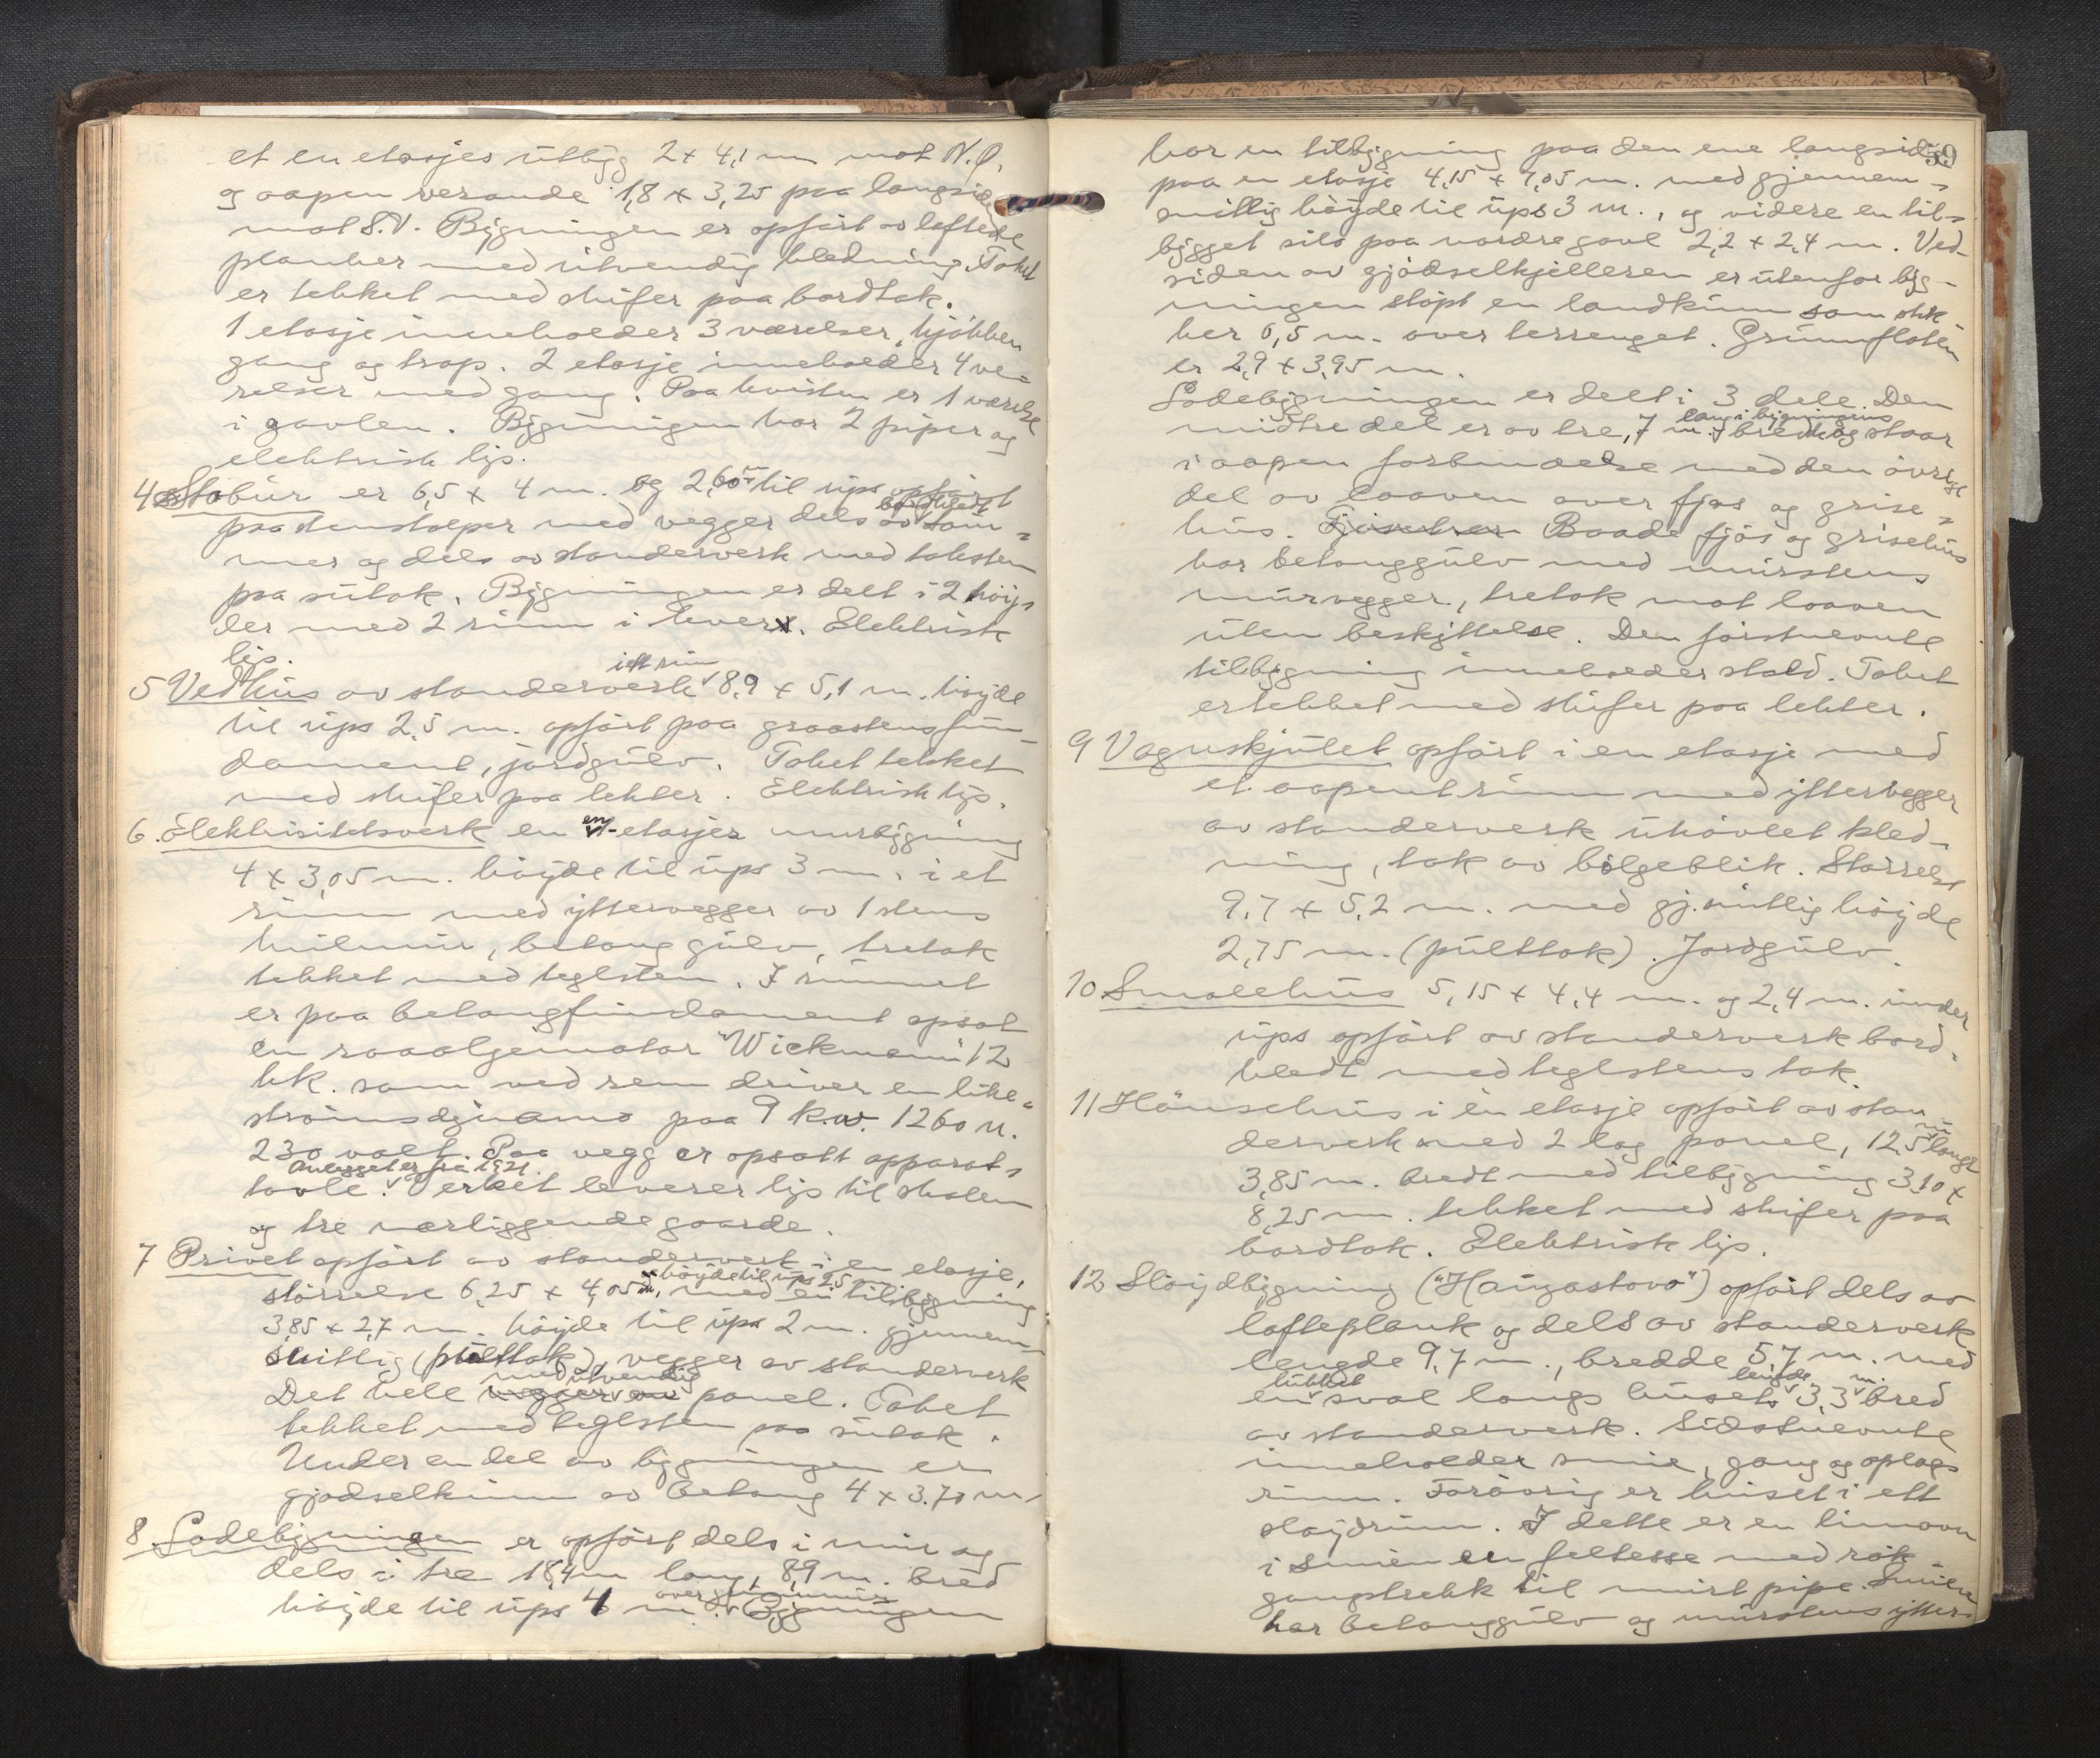 et en etasjes utbygg 2 x 4,1 m mot N.Ø.
og aapen veranda 1,8 x 3,25 paa langside
mot S.V. Bygningen er opført av laftede
planker med utvendig kledning. Taket
er tekket med skifer paa bordtak.
1 etasje inneholder 3 værelser, kjøkken
gang og trap. 2 etasje inneholder 4 væ-
relser med gang. Paa kvisten er 1 værelse
i gavlen. Bygningen har 2 piper og
elektrisk lys.
4 Stabur er 6,5 x 4 m. og 2,60 m til ups opført
paa stenstolper med vegger dels av tøm-
mer og dels av stenderverk bordkledt med taksten
paa sutak. Bygningen er delt i 2 høyj-
der med 2 rum i hver. Elektrisk
lys.
5 Vedhus av stenderverk i ett rum 8,9 x 5,1 m. høyde
til ups 2,5 m. opført paa graastensfun-
dament, jordgulv. Taket tekket
med skifer paa lekter. Elektrisk lys.
6. Elektrisitetsverk en en-etasjes murbygning
4 x 3,05 m. høyde til ups 3 m. i et
rum med yttervegger av 1 stens
hulmur, betong gulv, tretak
tekket med teglsten. I rummet
er paa betongfundament opsat
en raaoljemotor "Wickmann" 12
hk. som ved rem driver en like-
strømsdynamo paa 9 k.w. 1260 n.
230 volt. Paa vegg er opsatt apparat-
tavle. Anlegget er fra 1921. Verket leverer lys til skolen
og tre nærliggende gaarde.
7 Privet opført av stenderverk i en etasje,
størrelse 6,25 x 4,05 m, høyde til ups 2,5 med en tilbygning
3,85 x 2,7 m. høyde til ups 2 m. gjennem-
snitlig (pulttak), vegger av stenderverk
Det hele med utvendig panel. Taket
tekket med teglsten paa sutak.
Under en del av bygningen er
gjødselkum av betong 4 x 3.70 m.
8 Ladebygningen er opført dels i mur og
dels i tre 18,4 m lang, 8,9 m. bred
høyde til ups 4 m. over grunmur Bygningen
59
har en tilbygning paa den ene langside
paa en etasje 4,15 x 7,05 m. med gjennem-
snittlig høyde til ups 3 m., og videre en til-
bygget silo paa nordre gavl 2,2 x 2,4 m. Ved
siden av gjødselkjelleren er utenfor byg-
ningen støpt en landkum som stik-
ker 0,5 m. over terrenget. Grunnflaten
er 2,9 x 3,95 m.
Ladebygningen er delt i 3 dele. Den
midtre del er av tre, 7 m. lang i bygningens bredde og staar
i aapen forbindelse med den øvrige
del av laaven over fjøs og grise-
hus. Baade fjøs og grisehus
har betonggulv med murstens
murvegger, tretak mot laaven
uten beskyttelse. Den førstnevnte
tilbygning inneholder stald. Taket
er tekket med skifer paa lekter.
9 Vognskjulet opført i en etasje med
et aapent rum med yttervegger
av stenderverk uhøvlet kled-
ning, tak av bølgeblik. Størrelse
9,7 x 5,2 m. med gj.snitlig høyde
2,75 m. (pulttak). Jordgulv.
10 Smalehus 5,15 x 4,4 m. og 2,4 m. under
ups opført av stenderverk bord-
kledt med teglstens tak.
11 Hønsehus i én etasje opført av sten-
derverk med 2 lag panel, 12,5 m langt
3,85 m. bredt med tilbygning 3,10 x
8,25 m. tekket med skifer paa
bordtak. Elektrisk lys.
12 Sløydbygning ("Haugastova") opført dels av
lafteplank og dels av stenderverk
lengde 9,7 m., bredde 5,7 m. med
en lukket sval langs husets lengde 3,3 m. bred
av stenderverk. Sidstnevnte
inneholder smie, gang og oplags
rum. Forøvrig er huset i ett
sløydrum. I dette er en limovn
i smien en feltesse med røk-
gangtrekk til murt pipe. Smien
har betonggulv og murstens ytter-